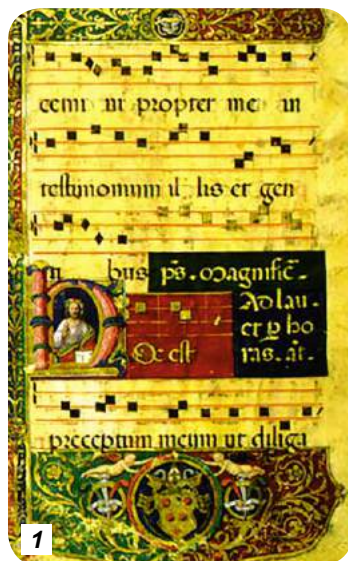 propter me in
testimonium il lis et gen
bus ps. Magnific̄.
Ad lau-
et ꝑ ho
ras. an̄.
Hoc est
preceptum meum ut diliga
1